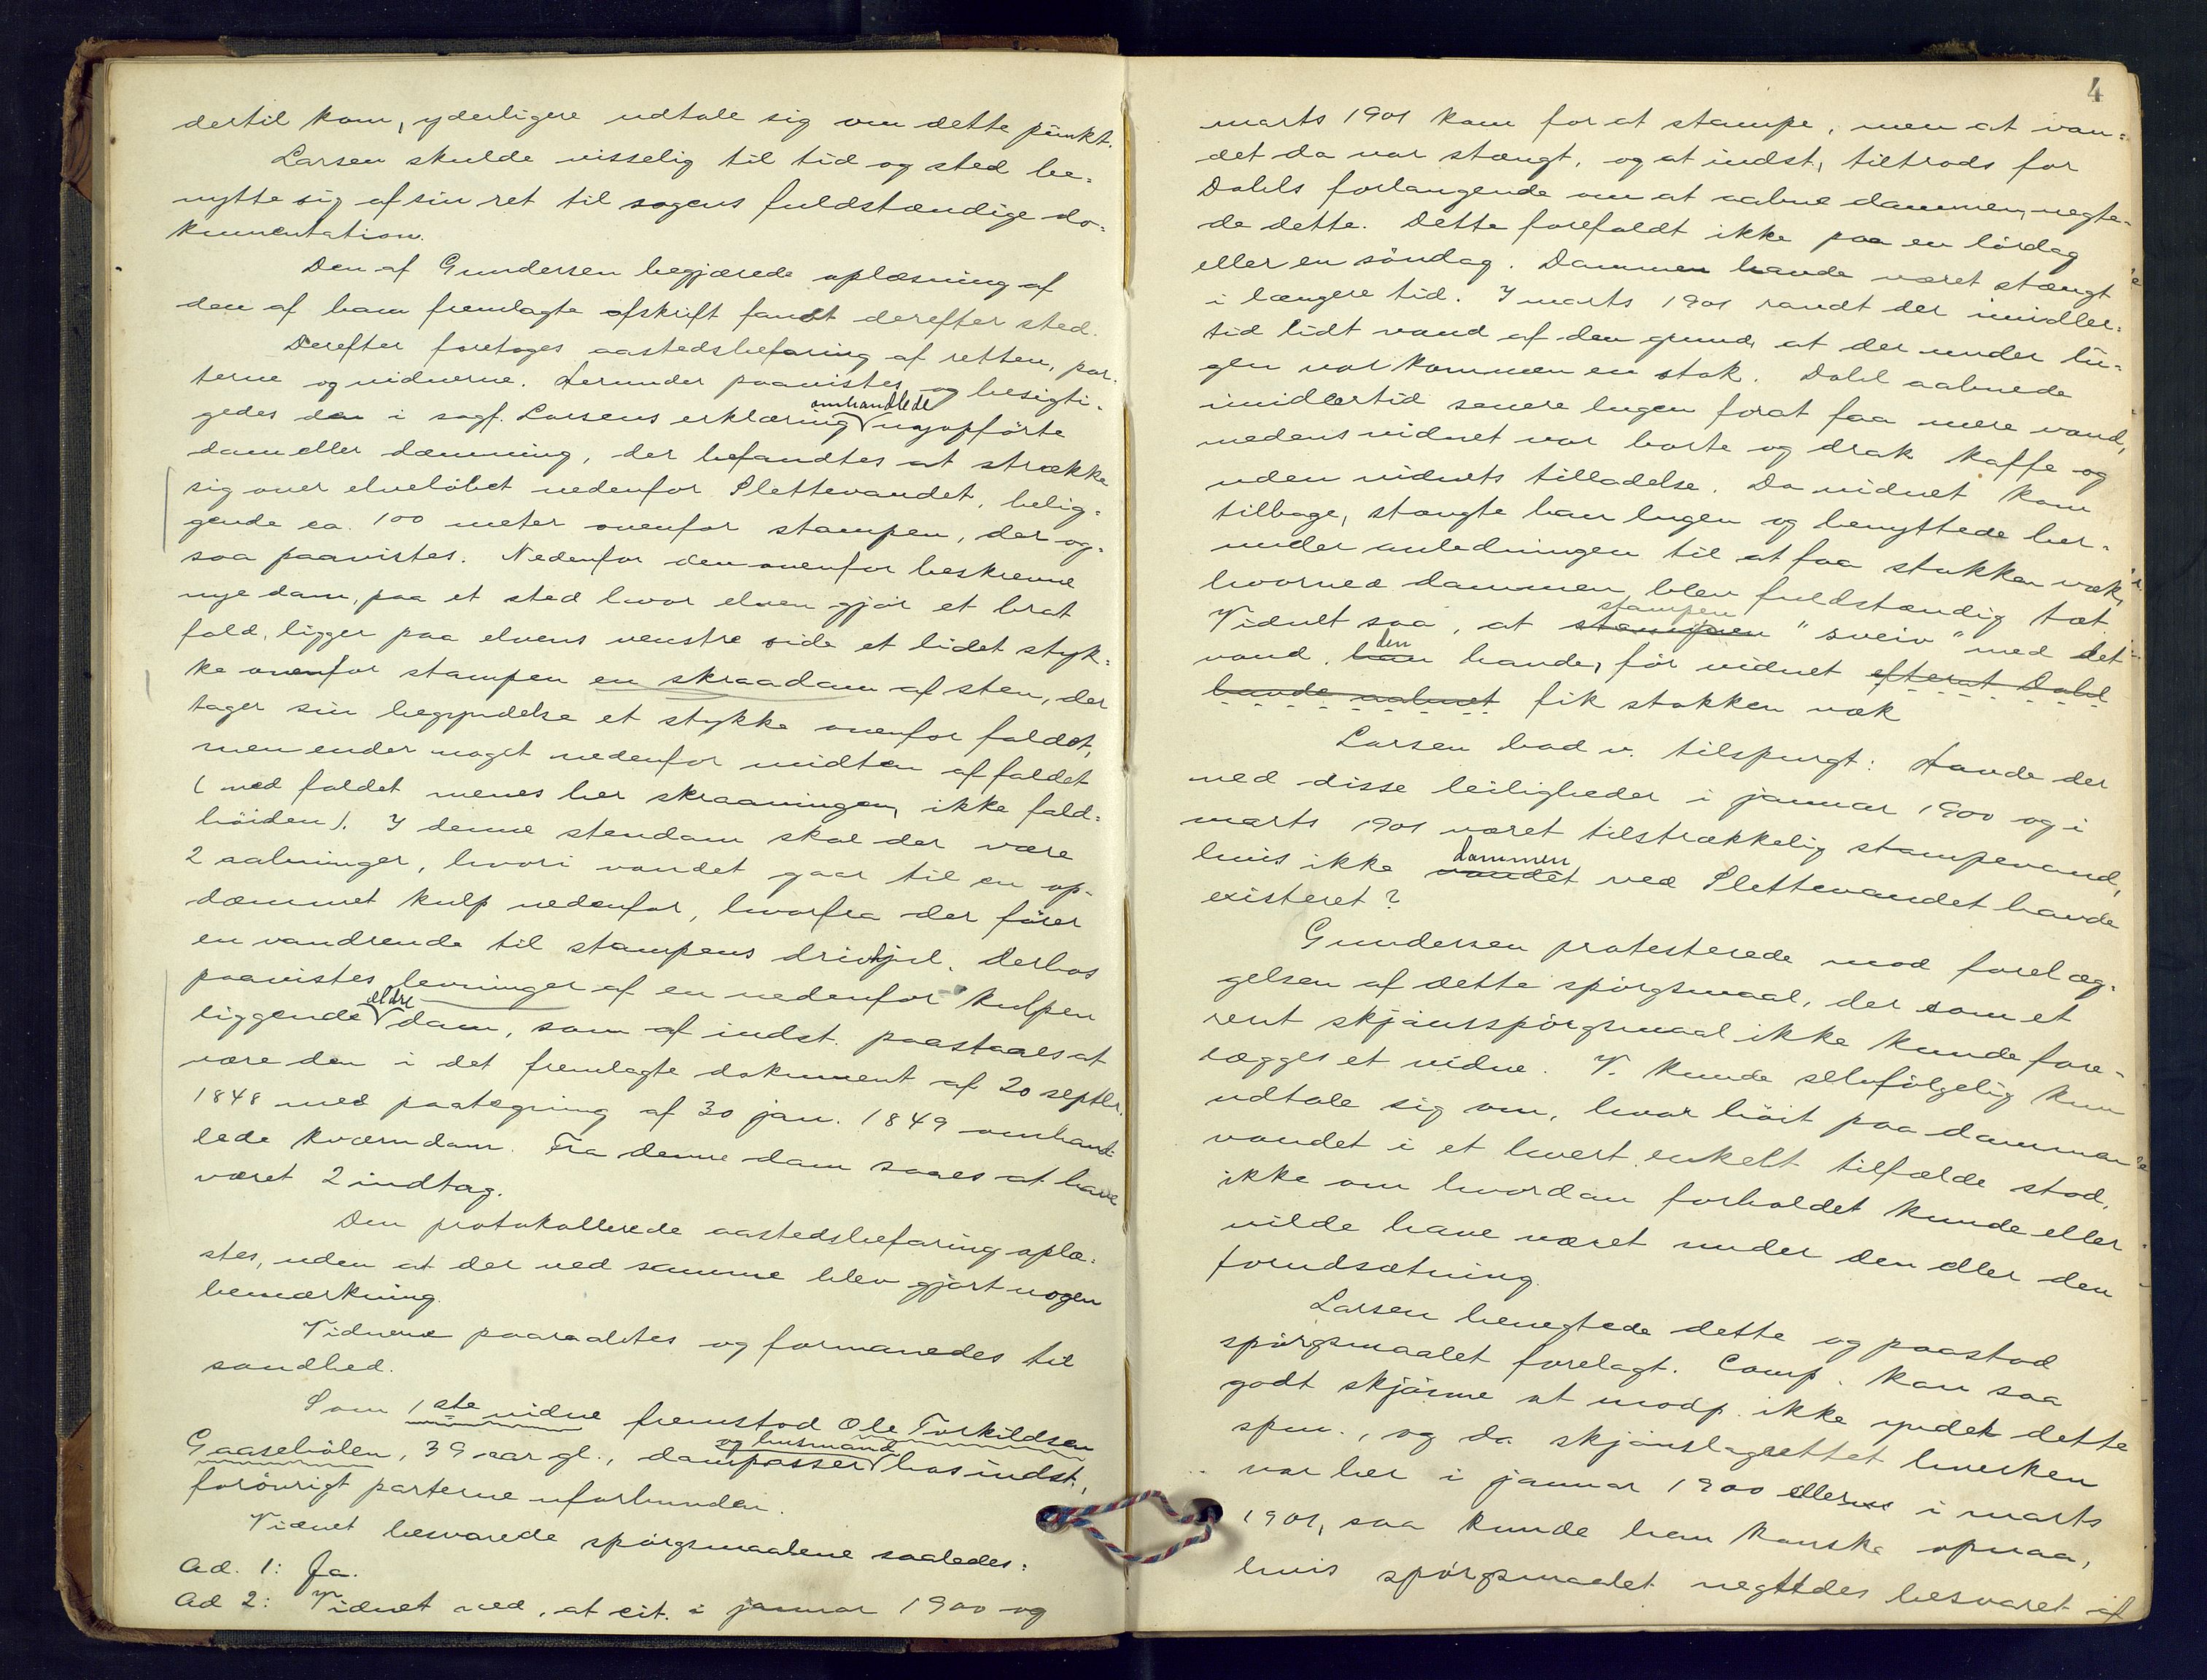 dertil kom, yderligere udtale sig om dette punkt.
Larsen skulde visselig til tid og sted be-
nytte sig af sin ret til sagens fuldstændige do-
kumentation.
Den af Gundersen begjærede oplæsning af
den af ham fremlagte afskrift fandt derefter sted.
Derefter foretoges aastedsbefaring af retten, par-
terne og vidnerne. Herunder paavistes og besigti-
gedes den i sagf. Larsens erklæring omhandlede nyopförte
dam eller dæmning, der befandtes at strække
sig over elvelöbet nedenfor Slettevandet, belig-
gende ca. 100 meter ovenfor stampen, der og-
saa paavistes. Nedenfor den ovenfor beskrevne
nye dam, paa et sted hvor elven gjör et brat
fald, ligger paa elvens venstre side et lidet styk-
ke ovenfor stampen en skraadam af sten, der
tager sin begyndelse et stykke ovenfor faldet,
men ender noget nedenfor midten af faldet
(ved faldet menes her skraaningen, ikke fald-
höiden). I denne stendam skal der være
2 aabninger, hvori vandet gaar til en op-
dæmmet kulp nedenfor, hvorfra der förer
en vandrende til stampens drivhjul. Derhos
paavistes levninger af en nedenfor kulpen
liggende ældre dam, som af indst. paastaaes at
være den i det fremlagte dokument af 20 septbr.
1848 med paategning af 30 jan. 1849 omhand-
lede kværndam. Fra denne dam saaes at have
været 2 indtag.
Den protokollerede aastedsbefaring oplæ-
stes, uden at der ved samme blev gjort nogen
bemærkning.
Vidnerne paaraabtes og formanedes til
sandhed.
Som 1ste vidne fremstod Ole Torkildsen
Gaaseholen, 39 aar gl., dampasser og husmand hos indst.,
forövrigt parterne uforbunden.
Vidnet besvarede spörgsmaalene saaledes:
Ad. 1: Ja.
Ad 2: Vidnet ved, at cit. i januar 1900 og
4
marts 1901 kom for at stampe, men at van-
det da var stængt, og at indst, tiltrods for
Dahls forlangende om at aabne dammen, negte-
de dette. Dette forefaldt ikke paa en lördag
eller en söndag. Dammen havde været stængt
i længere tid. I marts 1901 randt der imidler-
tid lidt vand af den grund, at der under lu-
gen var kommen en stok. Dahl aabnede
imidlertid senere lugen forat faa mere vand,
medens vidnet var borte og drak kaffe og
uden vidnets tilladelse. Da vidnet kom
tilbage, stængte han lugen og benyttede her-
under anledningen til at faa stokken væk,
hvorved dammen blev fuldstændig tæt.
Vidnet saa, at stampen stampen "sveiv" med det
vand, han den havde, för vidnet efterat Dahl
havde aabnet fik stokken væk
Larsen bad v. tilspurgt: Havde der
ved disse leiligheder i januar 1900 og i
marts 1901 været tilstrækkelig stampevand,
hvis ikke vandet dammen ved Slettevandet havde
existeret?
Gundersen protesterede mod forelæg-
gelsen af dette spörgsmaal, der som et
rent skjönsspörgsmaal ikke kunde fore-
lægges et vidne. V. kunde selvfölgelig kun
udtale sig om, hvor höit paa dammen
vandet i et hvert enkelt tilfælde stod,
ikke om hvordan forholdet kunde eller
vilde have været under den eller den
forudsætning.
Larsen benegtede dette og paastod
spörgsmaalet forelagt. Comp. kan saa
godt skjönne at modp. ikke yndet dette
spm., og da skjönslagrettet hverken
var her i januar 1900 eller i marts
1901, saa kunde han kanske opnaa,
hvis spörgsmaalet negtedes besvaret af